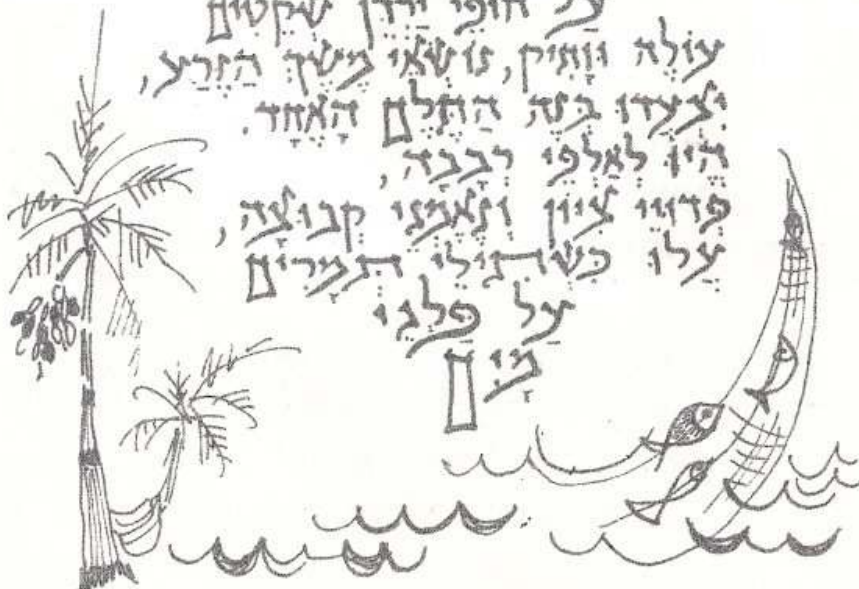 עַל חוֹפֵי יַרְדֵּן שְׁקֵטִים
עוֹלֶה וְוָתִיק, נוֹשְׂאֵי מֶשֶׁךְ הַזֶּרַע,
יִצְעֲדוּ בְּזֶה הַתֶּלֶם הָאֶחָד.
הֱיוּ לְאַלְפֵי רְבָבָה,
פְּדוּיֵי צִיּוֹן וְנֶאֶמְנֵי קְבוּצָה,
עֲלוּ כִּשְׁתִילֵי תְּמָרִים
עַל פַּלְגֵי
מָיִם